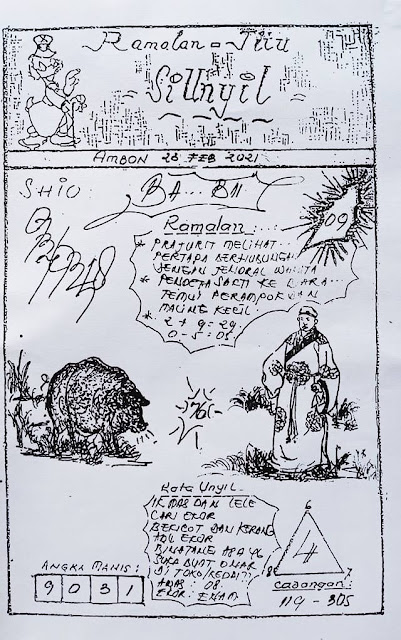 Ramalan = Jitu
SiUnyil
AMBON 26 FEB 2021
SHIO
BA.. BII
09
Ramalan:
* PRAJURIT MELIHAT..
PERTAPA BERHUBUNGAN
DENGAN JENDRAL WANITA
* PENDETA SAKTI KE UTARA..
TEMUI PERAMPOK DAN
MALING KECIL.
* 2 + 9 = 29.
0 - 5 : 05
76
Kata Unyil.
IKAN MAS DAN LELE
CARI EKOR
BEKICOT DAN KERANG
ADU EKOR
BINATANG APA YG
SUKA BUAT ONAR
DI TOKO/KEDAI?
AWAS : 08.
EKOR : ENAM
6
4
8
7
ANGKA MANIS:
9 0 3 1
Cadangan:
119 - 305